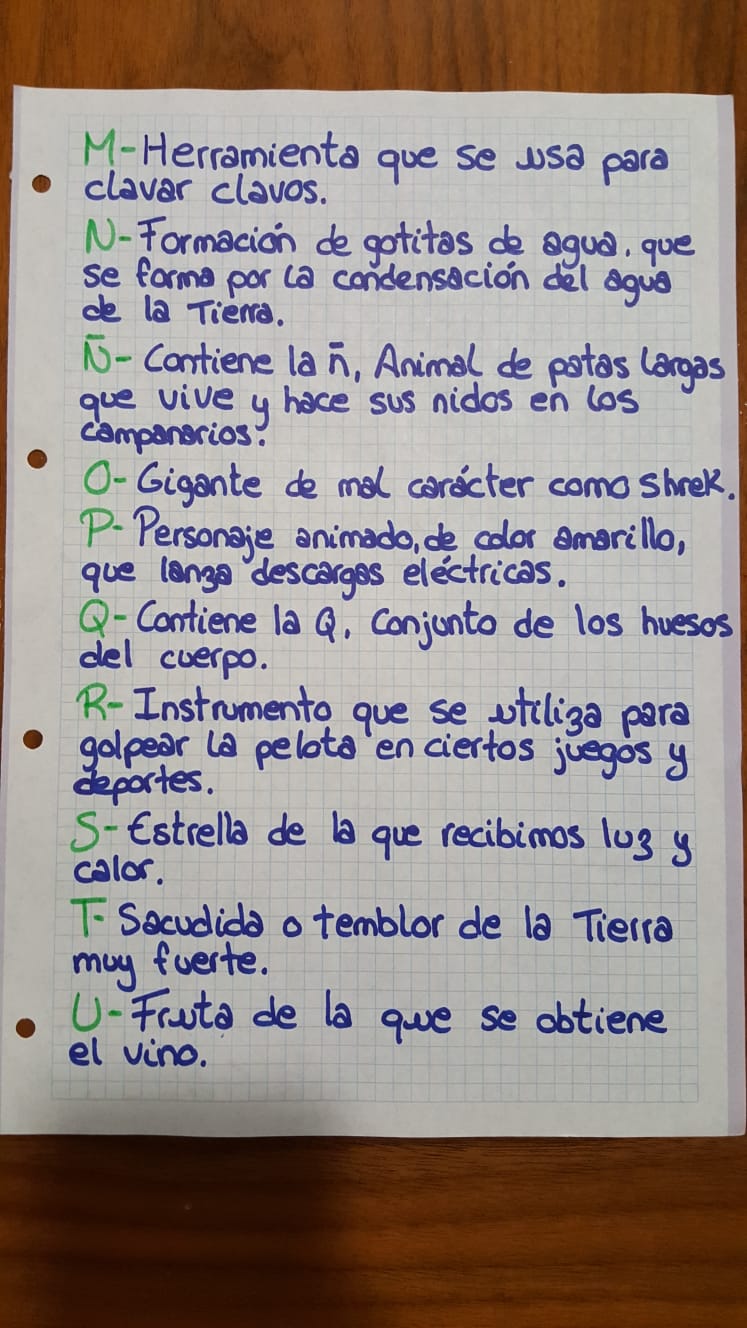 M-Herramienta que se usa para
clavar clavos.
N-Formación de gotitas de agua, que
se forma por la condensación del agua
de la Tierra.
Ñ-Contiene la ñ, Animal de patas largas
que vive y hace sus nidos en los
campanarios.
O-Gigante de mal carácter como Shrek.
P-Personaje animado, de color amarillo,
que lanza descargas eléctricas.
Q-Contiene la Q, Conjunto de los huesos
del cuerpo.
R-Instrumento que se utiliza para
golpear la pelota en ciertos juegos y
deportes.
S-Estrella de la que recibimos luz y
calor.
T-Sacudida o temblor de la Tierra
muy fuerte.
U-Fruta de la que se obtiene
el vino.